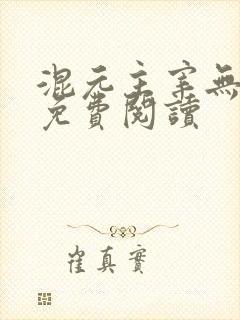 混元主宰無
免費閱讀
崔真實